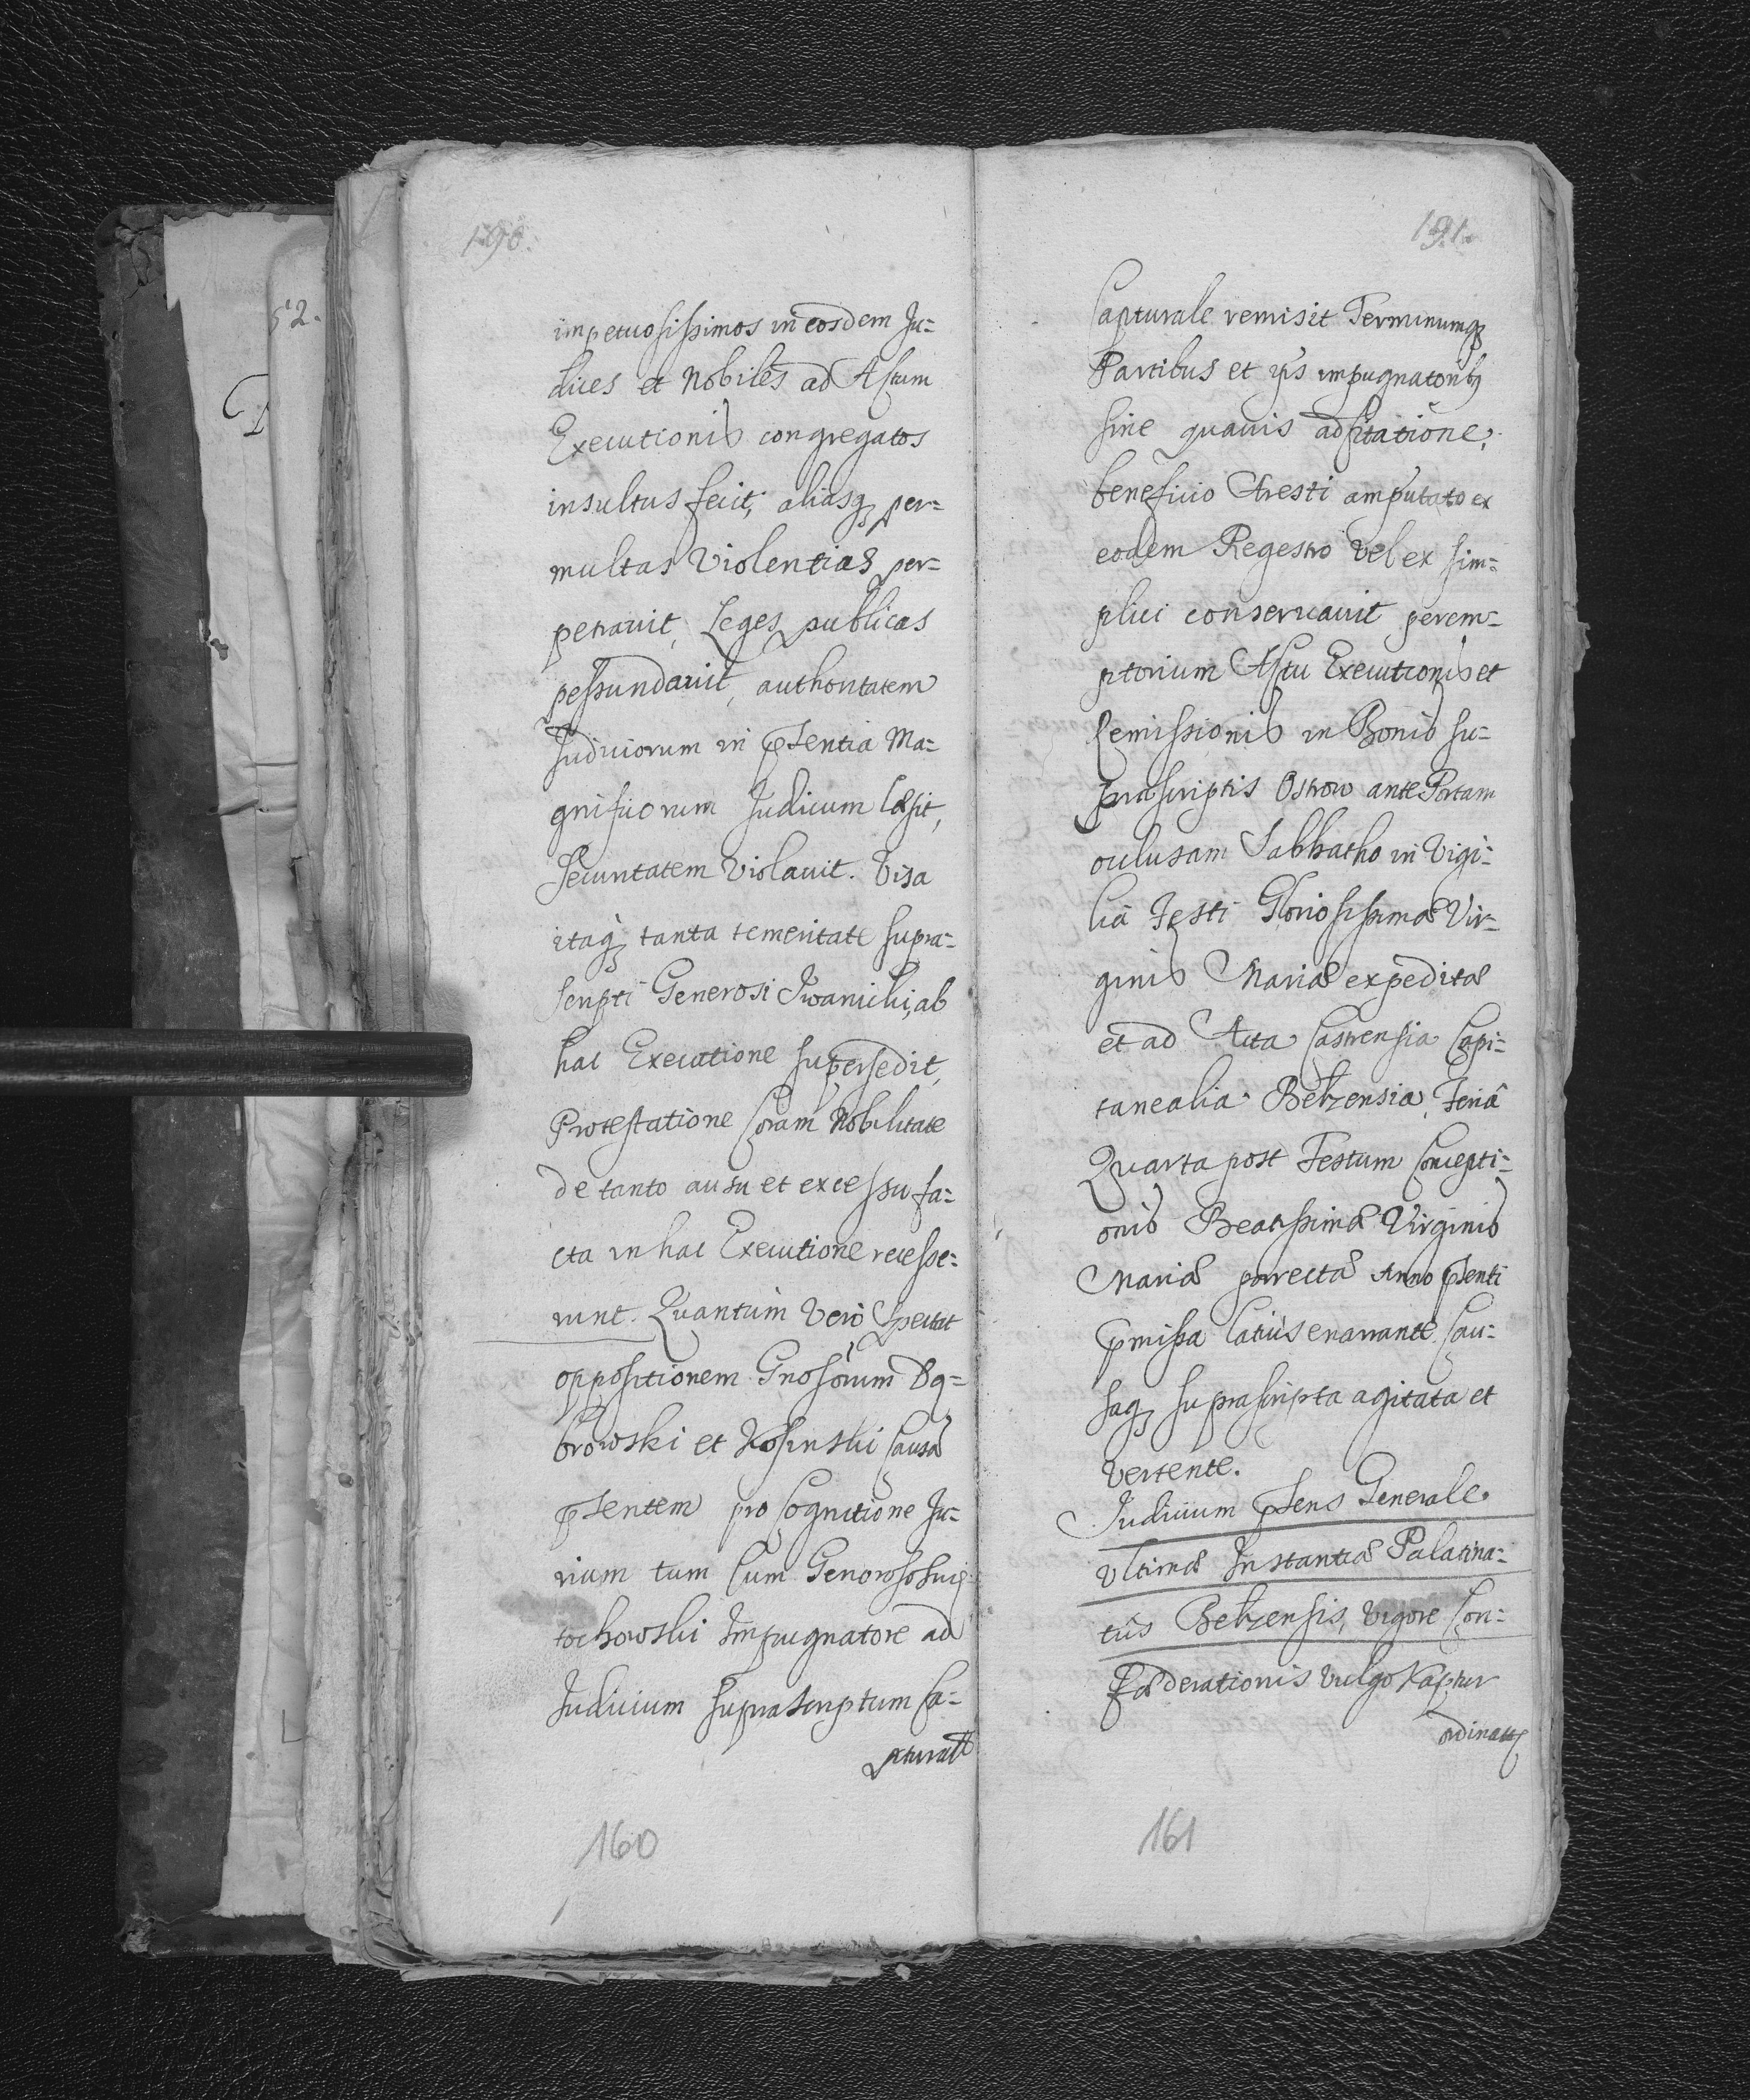 190.
impetuosissimos in eosdem Ju=
dices et Nobiles ad Actum
Executionis congregatos
insultus fecit, aliasq per=
multas Violentias per=
petravit, Leges publicas
pessundavit, authoritatem
Judiciorum in pñtentia Ma=
gnificorum Judicum læsit,
securitatem Violavit. Visa
itaq tanta temeritate supra=
scripti Generosi Iwanicki, ab
hac Executione supersedit,
Protestatione Coram Nobilitate
de tanto ausu et excessu fa=
cta in hac Executione recesse=
runt. Quantum Vero Spectat
oppositionem Gnosorum Dą=
browski et Kosinski Causã
pñtentem pro Cognitione Ju=
rium tum Cum Generoso
Impugnatore ad
Judicium suprascriptum Ca=
pturale
160
52.
191.
Capturale remisit Terminumq
Partibus et ijs impugnatoribq
sine quavis adcitatione,
beneficio Aresti amputato ex
eodem Regestro Vel ex sim=
plici conservavit perem=
ptorium Actu Executionis et
Remissionis in Bonis su=
prascriptis Ostrow ante Portam
oclusam Sabbatho in Vigi=
liâ Festi Gloriosissimæ Vir=
ginis Mariæ expeditæ
et ad Acta Castrensia Capi=
tanealia Belzensia, Feriâ
Quarta post Festum Concepti=
onis Beatissimæ Virginis
Mariæ porrectæ Anno pñtenti
pmissa latius enarrante Cau=
saq suprascripta agitata et
vertente.
Judicium pñtens Generale
Ultimæ Instantiæ Palatina=
tûs Belzensis, vigore Con=
fœderationis vulgo Kaptur
ordinatq
161